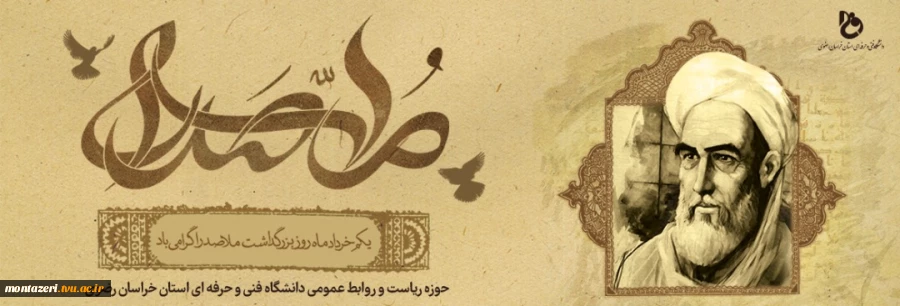 دانشگاه فنی و حرفه ای استان خراسان رضوی
ملاصدرا
یکم خرداد ماه روز بزرگداشت ملاصدرا گرامی باد
حوزه ریاست و روابط عمومی دانشگاه فنی و حرفه ای استان خراسان رضوی
montazeri.tvu.ac.ir